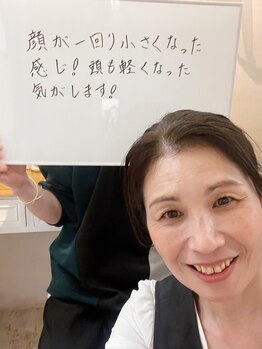 顔が一回り小さくなった
感じ!頭も軽くなった
気がします!